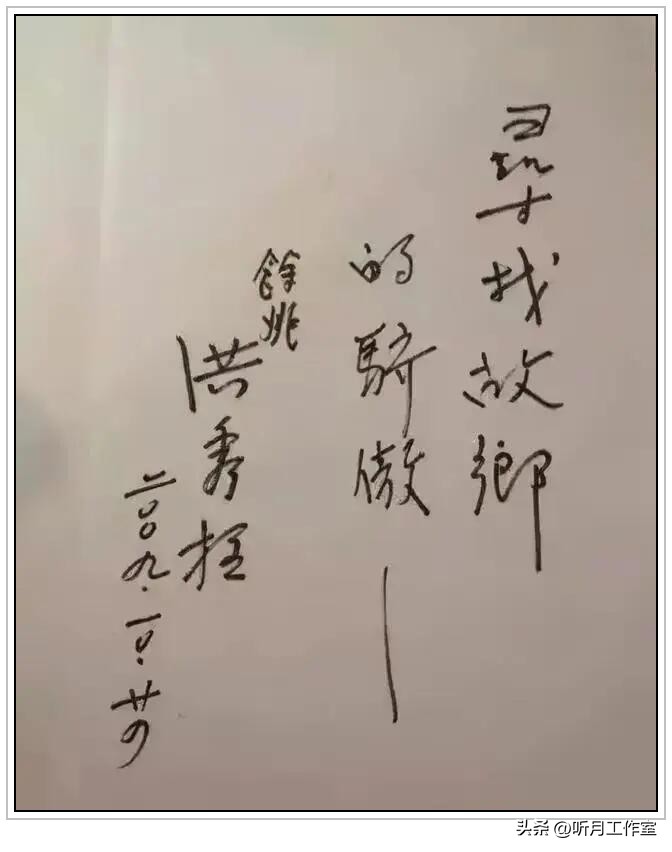 尋找故鄉
的驕傲—
餘姚
洪秀柱
二〇〇九.一〇.廿四
头条 @听月工作室